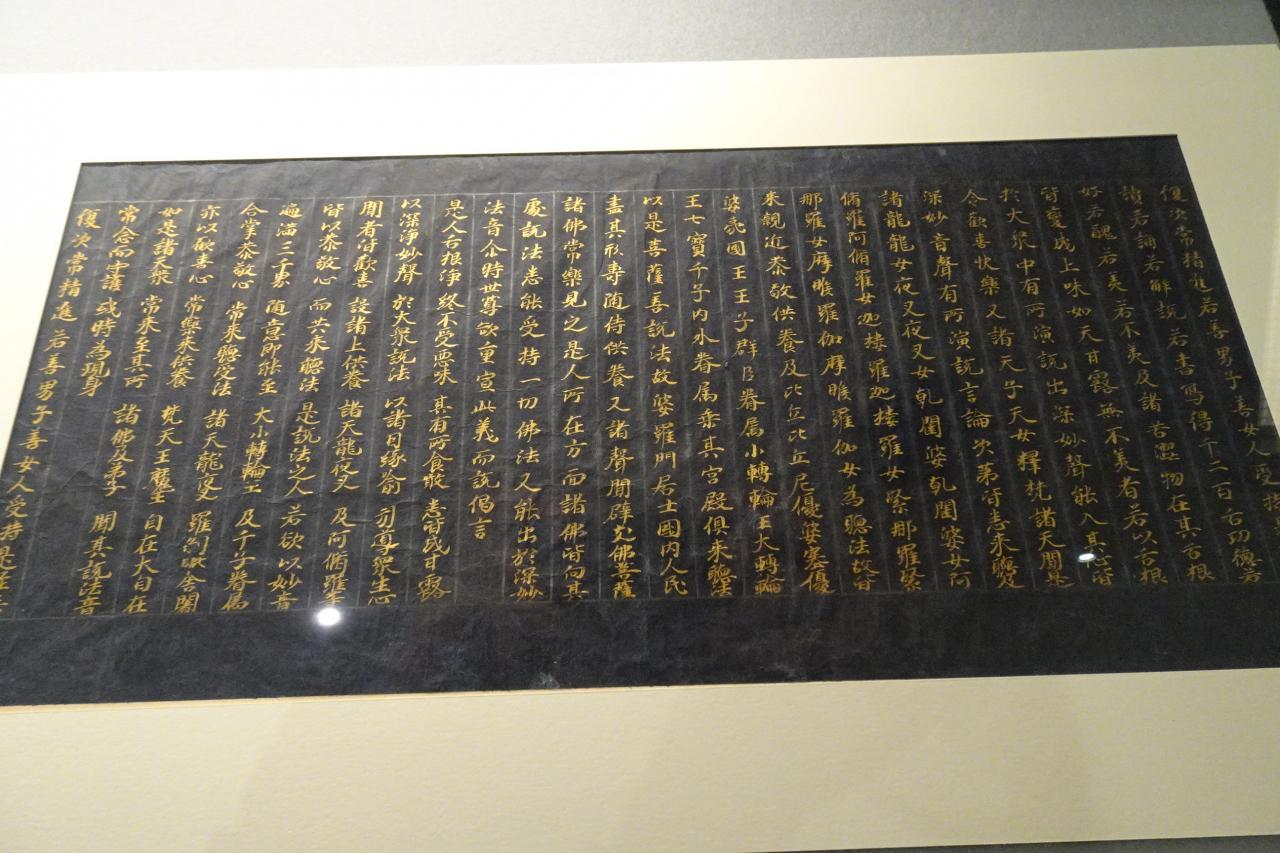 復次常精進若善男子善女人受持
讀若誦若解說若書寫得千二百舌功德若
好若醜若美若不美及諸苦澀物在其舌根
皆變成上味如天甘露無不美者若以舌根
於大眾中有所演說出深妙聲能入其心皆
令歡喜快樂又諸天子天女釋梵諸天聞是
深妙音聲有所演說言論次第皆悉來聽
諸龍龍女夜叉夜叉女乾闥婆乾闥婆女阿
脩羅阿脩羅女迦樓羅迦樓羅女緊那羅緊
那羅女摩睺羅伽摩睺羅伽女為聽法故皆
來親近恭敬供養及比丘比丘尼優婆塞優
婆夷國王王子群臣眷属小轉輪王大轉輪
王七寶千子內外眷属乘其宮殿俱來聽法
以是菩薩善說法故婆羅門居士國內人民
盡其形壽随侍供養又諸聲聞辟支佛菩薩
諸佛常樂見之是人所在方面諸佛皆向其
處說法悉能受持一切佛法又能出於深妙
法音尒時世尊欲重宣此義而說偈言
是人舌根淨 終不受惡味 其有所食噉 悉皆成甘露
以深淨妙聲 於大眾說法 以諸因緣喻 引導眾生心
聞者皆歡喜 設諸上供養 諸天龍夜叉 及阿脩羅等
皆以恭敬心 而共來聽法 是說法之人 若欲以妙音
遍滿三千界 随意即能至 大小轉輪王 及千子眷属
合掌恭敬心 常來聽受法 諸天龍夜叉 羅剎毗舍闍
亦以歡喜心 常樂來供養 梵天王魔王 自在大自在
如是諸天眾 常來至其所 諸佛及弟子 聞其說法音
常念而守護 或時為現身
復次常精進若善男子善女人受持是